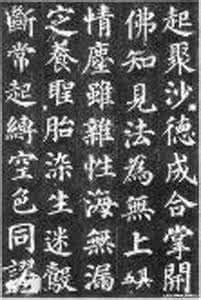 起聚沙德成合掌開
佛知見法為無上具
情塵雖雜性海無漏
定養聖胎染生迷㲉
斷常起縛空色同謬